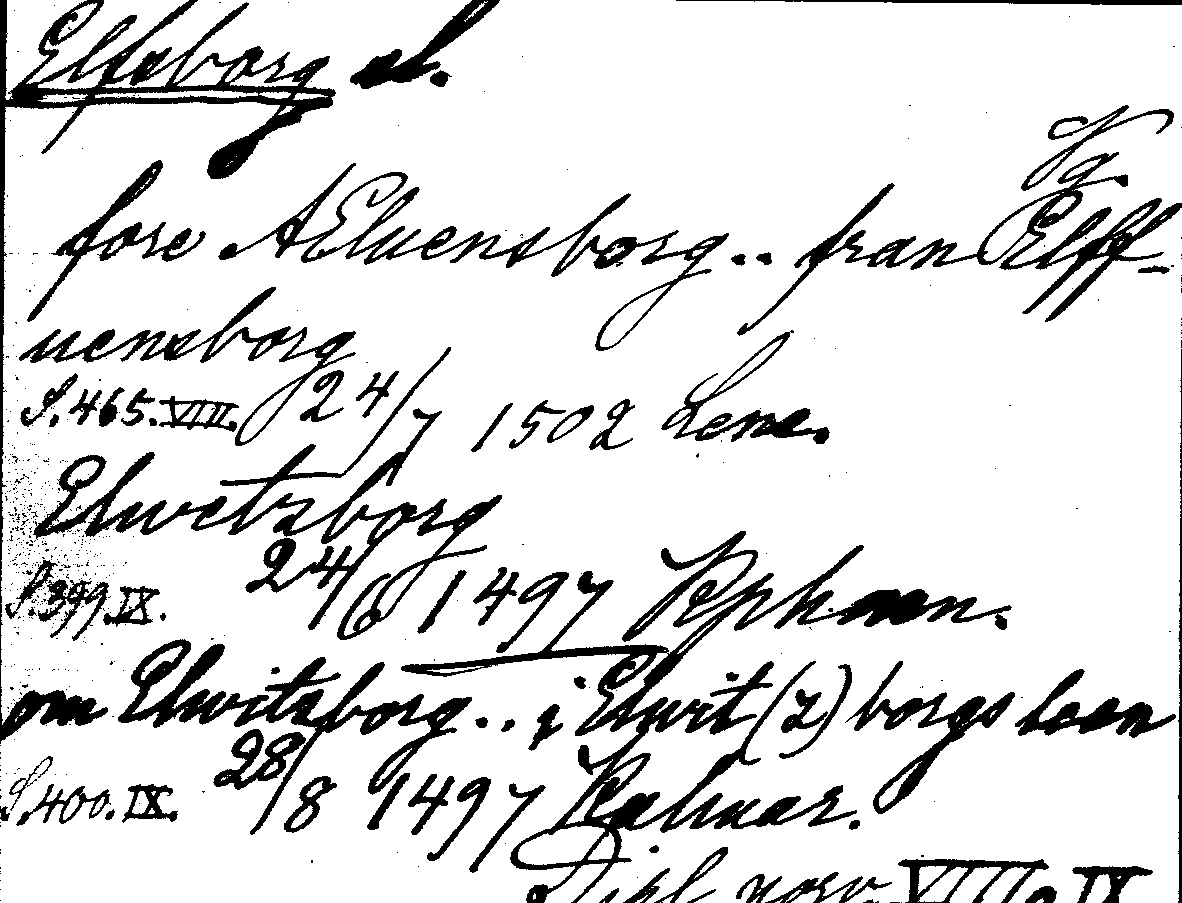 Elfsborg sl.
Vg.
fore AEluensborg.. fran Elff-
uensborg
S. 465. VIII. 24/7 1502 Lene.
Elwetzborg
S. 399. IX. 24/6 1497 Kphaen.
om Elwitzborg.. i Elwit(z)borgs leen
S. 400. IX. 28/8 1497 Kalmar.
Dipl. norv. VIII o IX